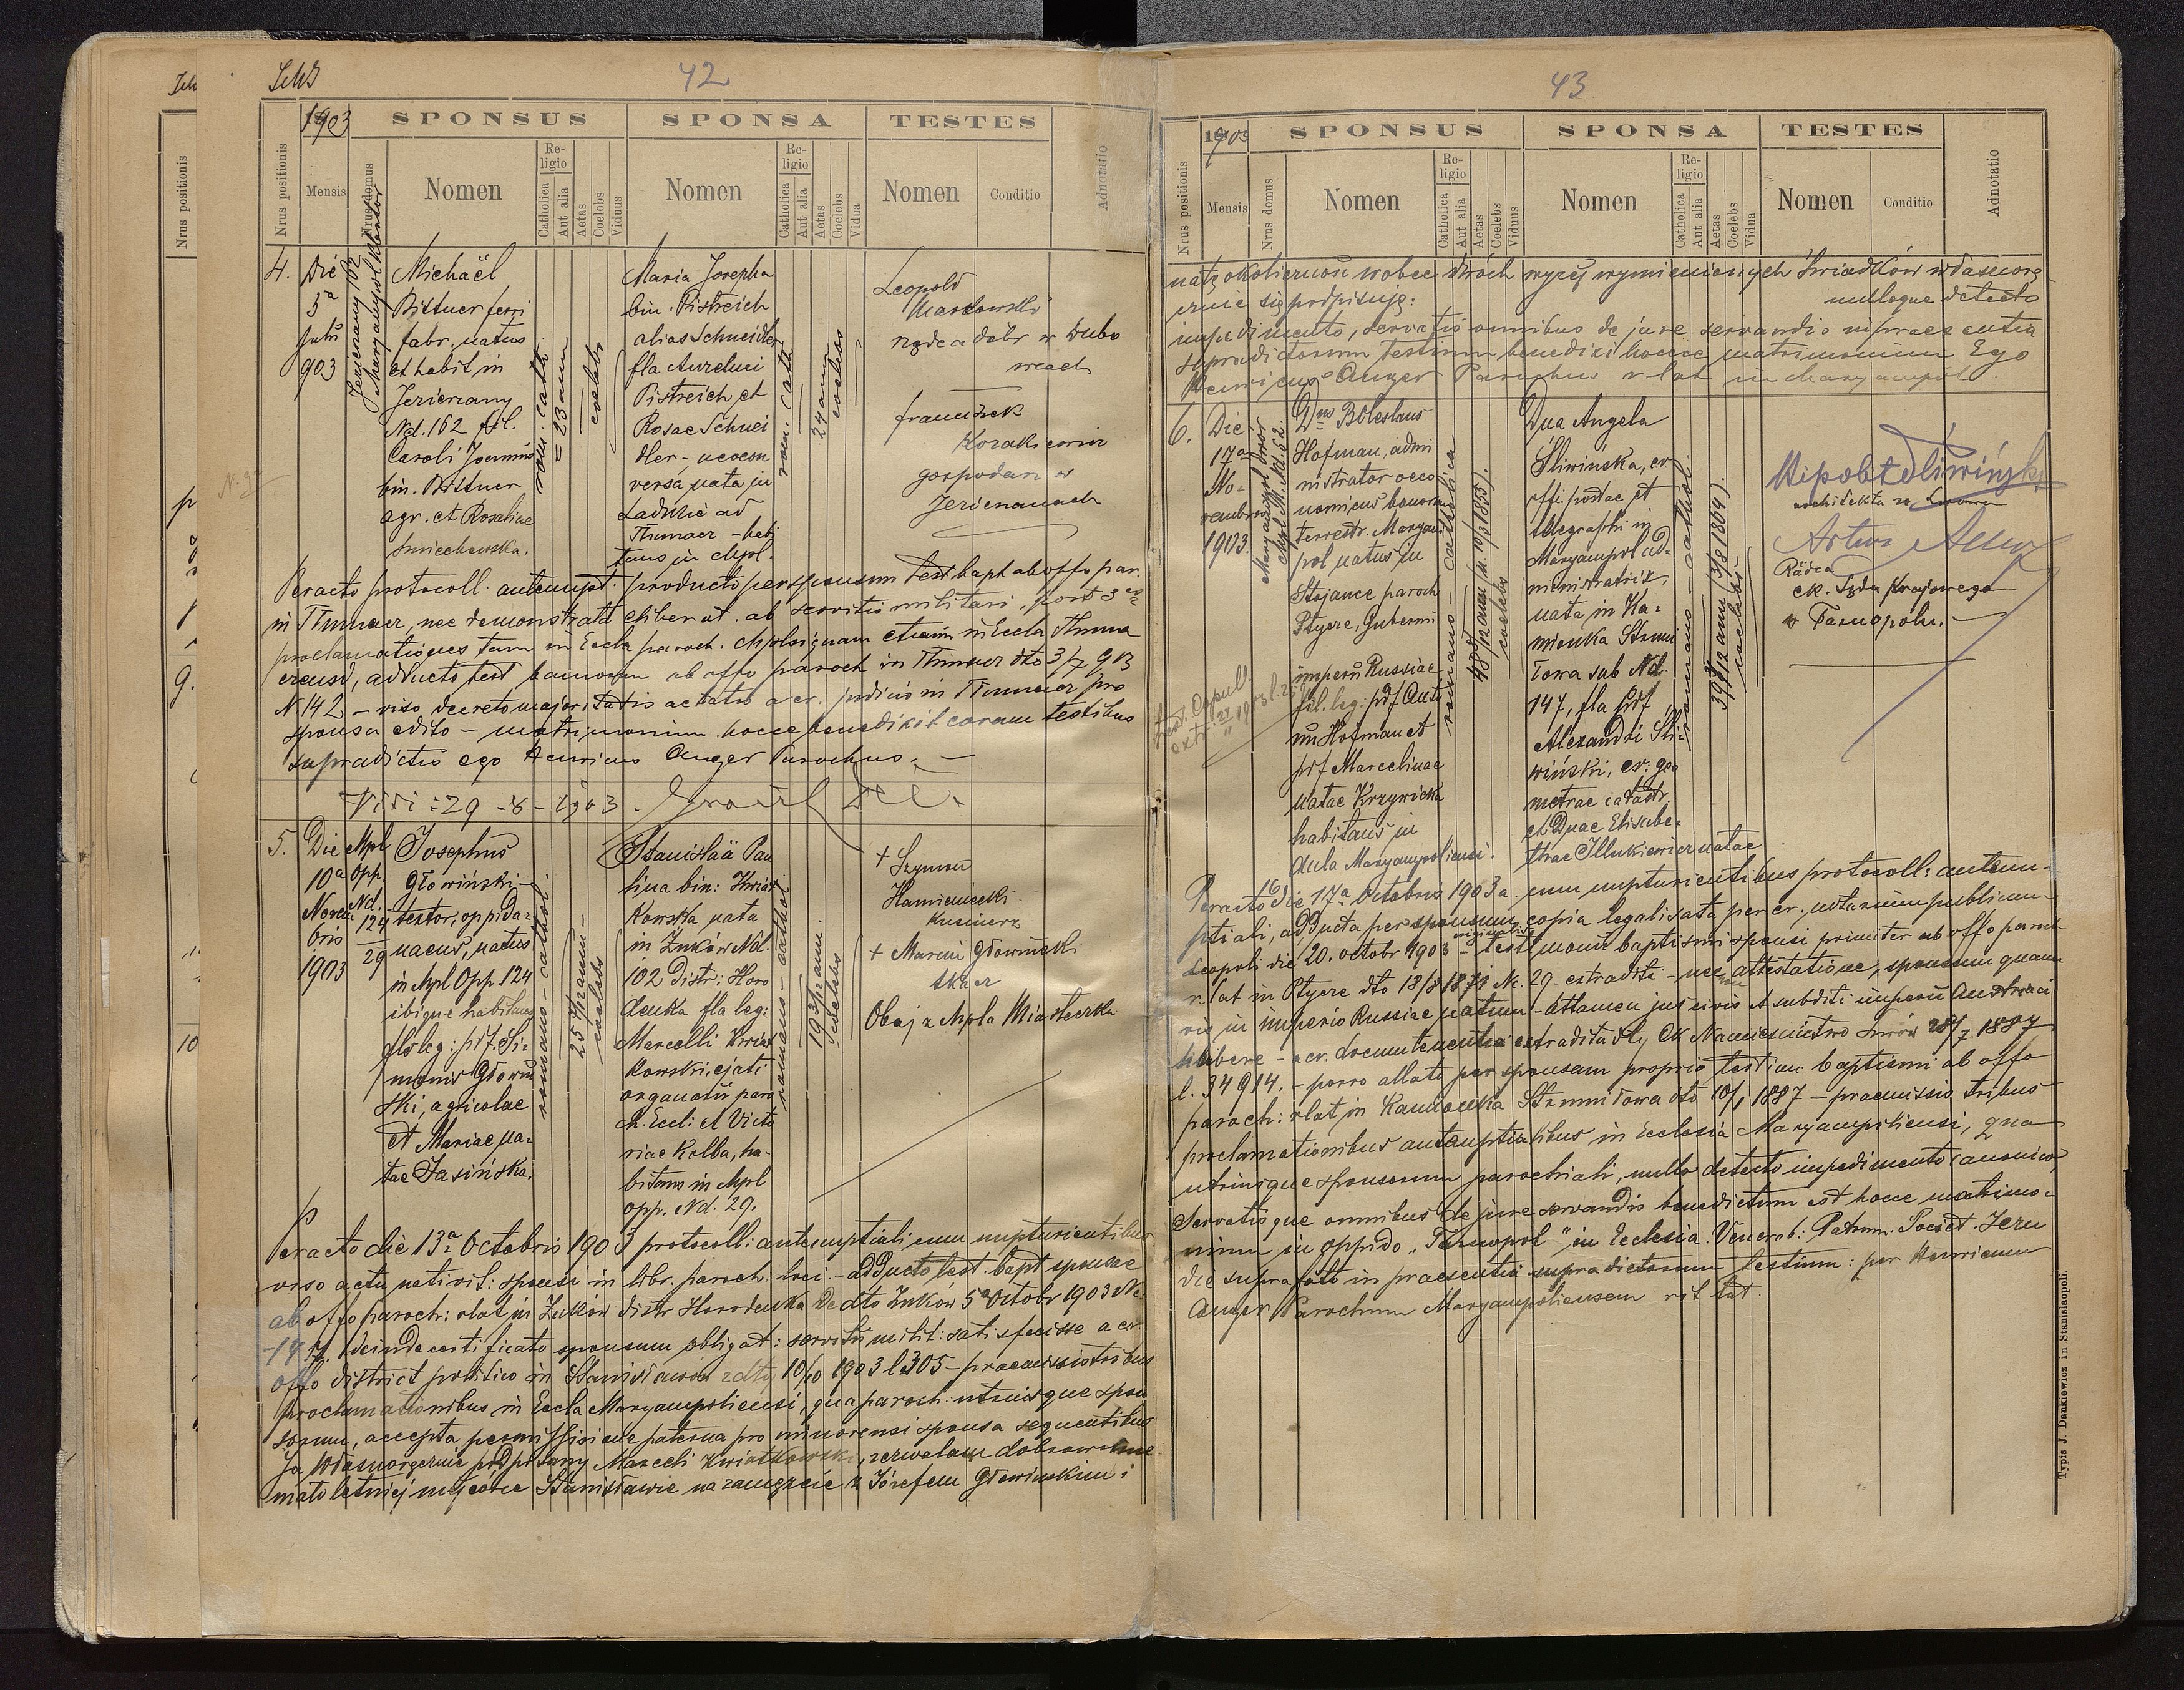 42
1903
SPONSUS
SPONSA
TESTES
Nrus positionis
Mensis
Nrus domus
Nomen
Religio
Catholica
Aut alia
Aetas
Coelebs
Viduus
Nomen
Religio
Catholica
Aut alia
Aetas
Coelebs
Vidua
Nomen
Conditio
Adnotatio
4.
Die
5ª
903
Jezierzany 162
Michaël
Bittner ferri
fabr. natus
et habit. in
Jezierzany
Nd. 162 fil.
Caroli
bin. Bittner
agr. et Rosaliae
Śmiechowska.
rom. cath.
23 ann
coelebs
Maria Josepha
bin. Pistreich
alias Schneidler
fla Aurelii
Pistreich et
Rosae Schnei
dler - neocon
versa, nata in
ad
Tłumacz - habi
tans in Mpl.
rom. cath.
24 ann
coelebs
Leopold
Markowski
rządca dóbr w Dubo
wcach
franciszek
Korakiewicz
gospodarz w
Jezierzanach
Peracto protocoll. antenupt. producto per sponsum test. bapt. ab offo par.
in Tłumacz, nec demonstrata liberat. ab servitio militari, post 3es
proclamationes tam in Eccla paroch. Mplsi quam etiam in Eccla Tłuma
czensi, adducto test bannorum ab offo paroch in Tłumacz dto 3/7 903
N 142 - viso decreto majoritatis aetatis a cr. judicio in Tłumacz pro
sponsa edito - matrimonium hocce benedixit coram testibus
supradictis ego Henricus Auger Parochus. -
Vidi 29-8-1903.
5.
Die
10ª
Novem
bris
1903
Mpl
Opp
Nd.
124
29
Josephus
Głowiński -
textor, oppida-
naeus, natus
in Mpl Opp 124
ibique habitans
fls leg: pdf. Si-
monis Głowiń
ski, agricolae
et Mariae na-
tae Jasińska.
romano-cathol.
coelebs
Stanislaä Pau
lina bin: Kwiat
kowska nata
in Żuków Nd.
102 distr: Horo
denka fla leg:
Marcelli Kwiat
kowski,
organarii paro
ch. Eccl: et Victo
riae Kolba, ha-
bitans in Mpl
opp. Nd. 29.
romano-cathol.
coelebs
+ Szymon
Kusnierz
+ Marcin Głowiński
tkacz
Obaj z Mpla Miasteczka
Peracto die 13ª Octobris 1903 protocoll: antenuptiali cum nupturientibus
viso actu nativit: sponsi in libr. paroch. loci - adducto test. bapt. sponsae
ab offo paroch: rlat in Żuków distr Horodenka de dto Żukow 5ª Octobr 1903 N.
deinde certificato sponsum obligat: servitii milit: satisfecisse a cr.
offo district politico in Stanisławow 10/10 1903 l. 305 - praemissis tribus
proclamationibus in Eccla Maryampoliensi, qua paroch: utriusque spon
sorum, accepta permissione paterna pro minorensi sponsa sequentibus
Ja własnoręcznie podpisany Marceli Kwiatkowski, zezwalam dobrowolnie
mało letniéj mojéj córce Stanisławie na zamęzcie z Józefem Głowinskim i
43
1903
SPONSUS
SPONSA
TESTES
Nrus positionis
Mensis
Nrus domus
Nomen
Religio
Catholica
Aut alia
Aetas
Coelebs
Viduus
Nomen
Religio
Catholica
Aut alia
Aetas
Coelebs
Vidua
Nomen
Conditio
Adnotatio
okoliczność wobec dwóch wyżéj wymienionych świadków własnorę
cznie się podpisuję:
nulloque detecto
impedimento, servatis omnibus de jure servandis in praesentia
supradictorum testium benedixi hocce matrimonium Ego
Henricus Auger Parochus r-lat in Maryampol.
6.
Die
17ª
No-
vembris
1903.
Maryampol dwór
Dnus Boleslaus
Hofman, admi
nistrator oeco
nomicus bonorum
terrestr. Maryam
pol natus in
Stojance paroch
Ptycze, Gubernii
imperii Russiae
fil. leg: pdf Anto
nii Hofman et
pdf Marcelinae
natae Krzywicka
habitans in
Aula Maryampoliensi.
romano-catholica
coelebs
Dna Angela
Śliwińska, cr.
offi. postae et
telegraphi in
Maryampol ad-
ministratrix,
nata in Ka-
mionka Strumi
łowa sub Nd.
147, fla pdf
Alexandri Śli-
wiński, cr: geo
metrae catastr.
et Dnae Elisabe-
thae Illukiewicz natae
romano-cathol.
coelebs
Hipolit Śliwiński
architekta ze Lwowa
Artur
Radca
ck. Sądu Krajowego
w Tarnopolu.
Peracto die 17ª Octobris 1903 a. cum nupturientibus protocoll: antenu-
ptiali, adducta per sponsum copia legalisata per cr. notarium publicum
Leopoli die 20. octobr 1903 - testimonii baptismi sponsi primiter ab offo paroch
r lat in Ptycze dto 18/8 1871 N. 29 extraditi - nec attestatione, sponsum quam
vis in imperio Russiae natum - attamen jus civis et subditi imperii Austriaci
habere - a cr. documententia extradita dty CK Namiestnictwo Lwów 28/7 1887
l. 34914. - porro allato per sponsam proprio testim. baptismi ab offo
paroch: rlat in Kamionka Strumiłowa dto 10/1 1887 - praemissis tribus
proclamationibus antenuptialibus in Ecclesia Maryampoliensi, qua
utriusque sponsorum parochiali, nullo detecto impedimento canonico,
servatisque omnibus de jure servandis benedictum est hocce matrimo-
nium in oppido "Tarnopol" in Ecclesia Venerab: Patrum. Societ. Jesu
die supra dto in praesentia supradictorum testium: per Henricum
Auger Parochum Maryampoliensem rit lat.
Typis J. Dankiewicz in Stanislaopoli.